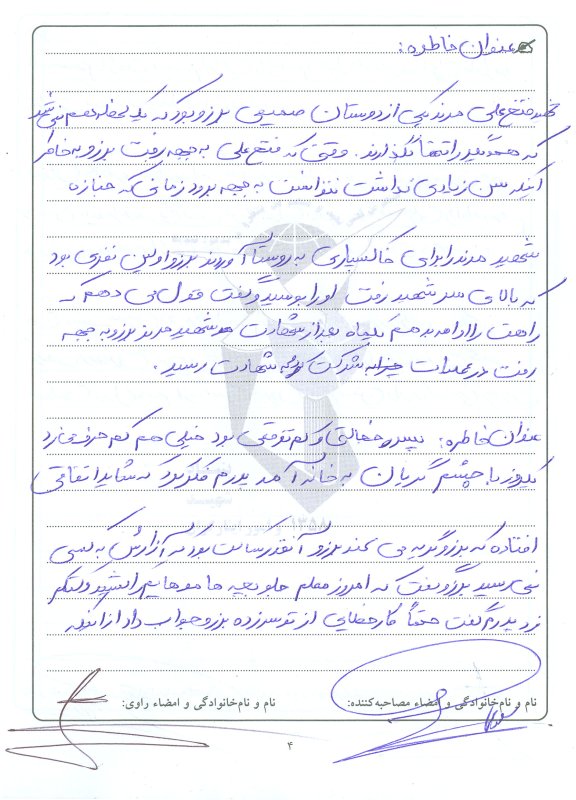 عنوان خاطره:
شهید فتحعلی مرندیکی از دوستان صمیمی برزو بود که یک لحظه هم نمی شد
که همدیگر را تنها بگذارند. وقتی که فتحعلی به جبهه رفت برزو به خاطر
اینکه سن زیادی نداشت نتوانست به جبهه برود زمانی که جنازه
شهید مرند را برای خاکسپاری به روستا آوردند برزو اولین نفری بود
که بالای سر شهید رفت او را بوسید و گفت قول می دهم که
راهت را ادامه بدهم یکماه بعد از شهادت شهید مرند برزو به جبهه
رفت در عملیات شرکت کرد به شهادت رسید.
عنوان خاطره: پسر خجالتی و کم توقعی بود خیلی هم کم حرف می زد
یکروز با چشم گریان به خانه آمد پدرم فکر کرد که شاید اتفاقی
افتاده که برزو گریه می کند برزو آنقدر ساکت بود که آزارش به کسی
نمی رسید برزو گفت که امروز معلم جلو بچه ها موهایم را کتکم
زد پدرم گفت حتماً کار خطایی از تو سر زده برزو جواب داد از اینکه
نام و نام‌خانوادگی و امضاء مصاحبه‌کننده:
نام و نام‌خانوادگی و امضاء راوی:
۴